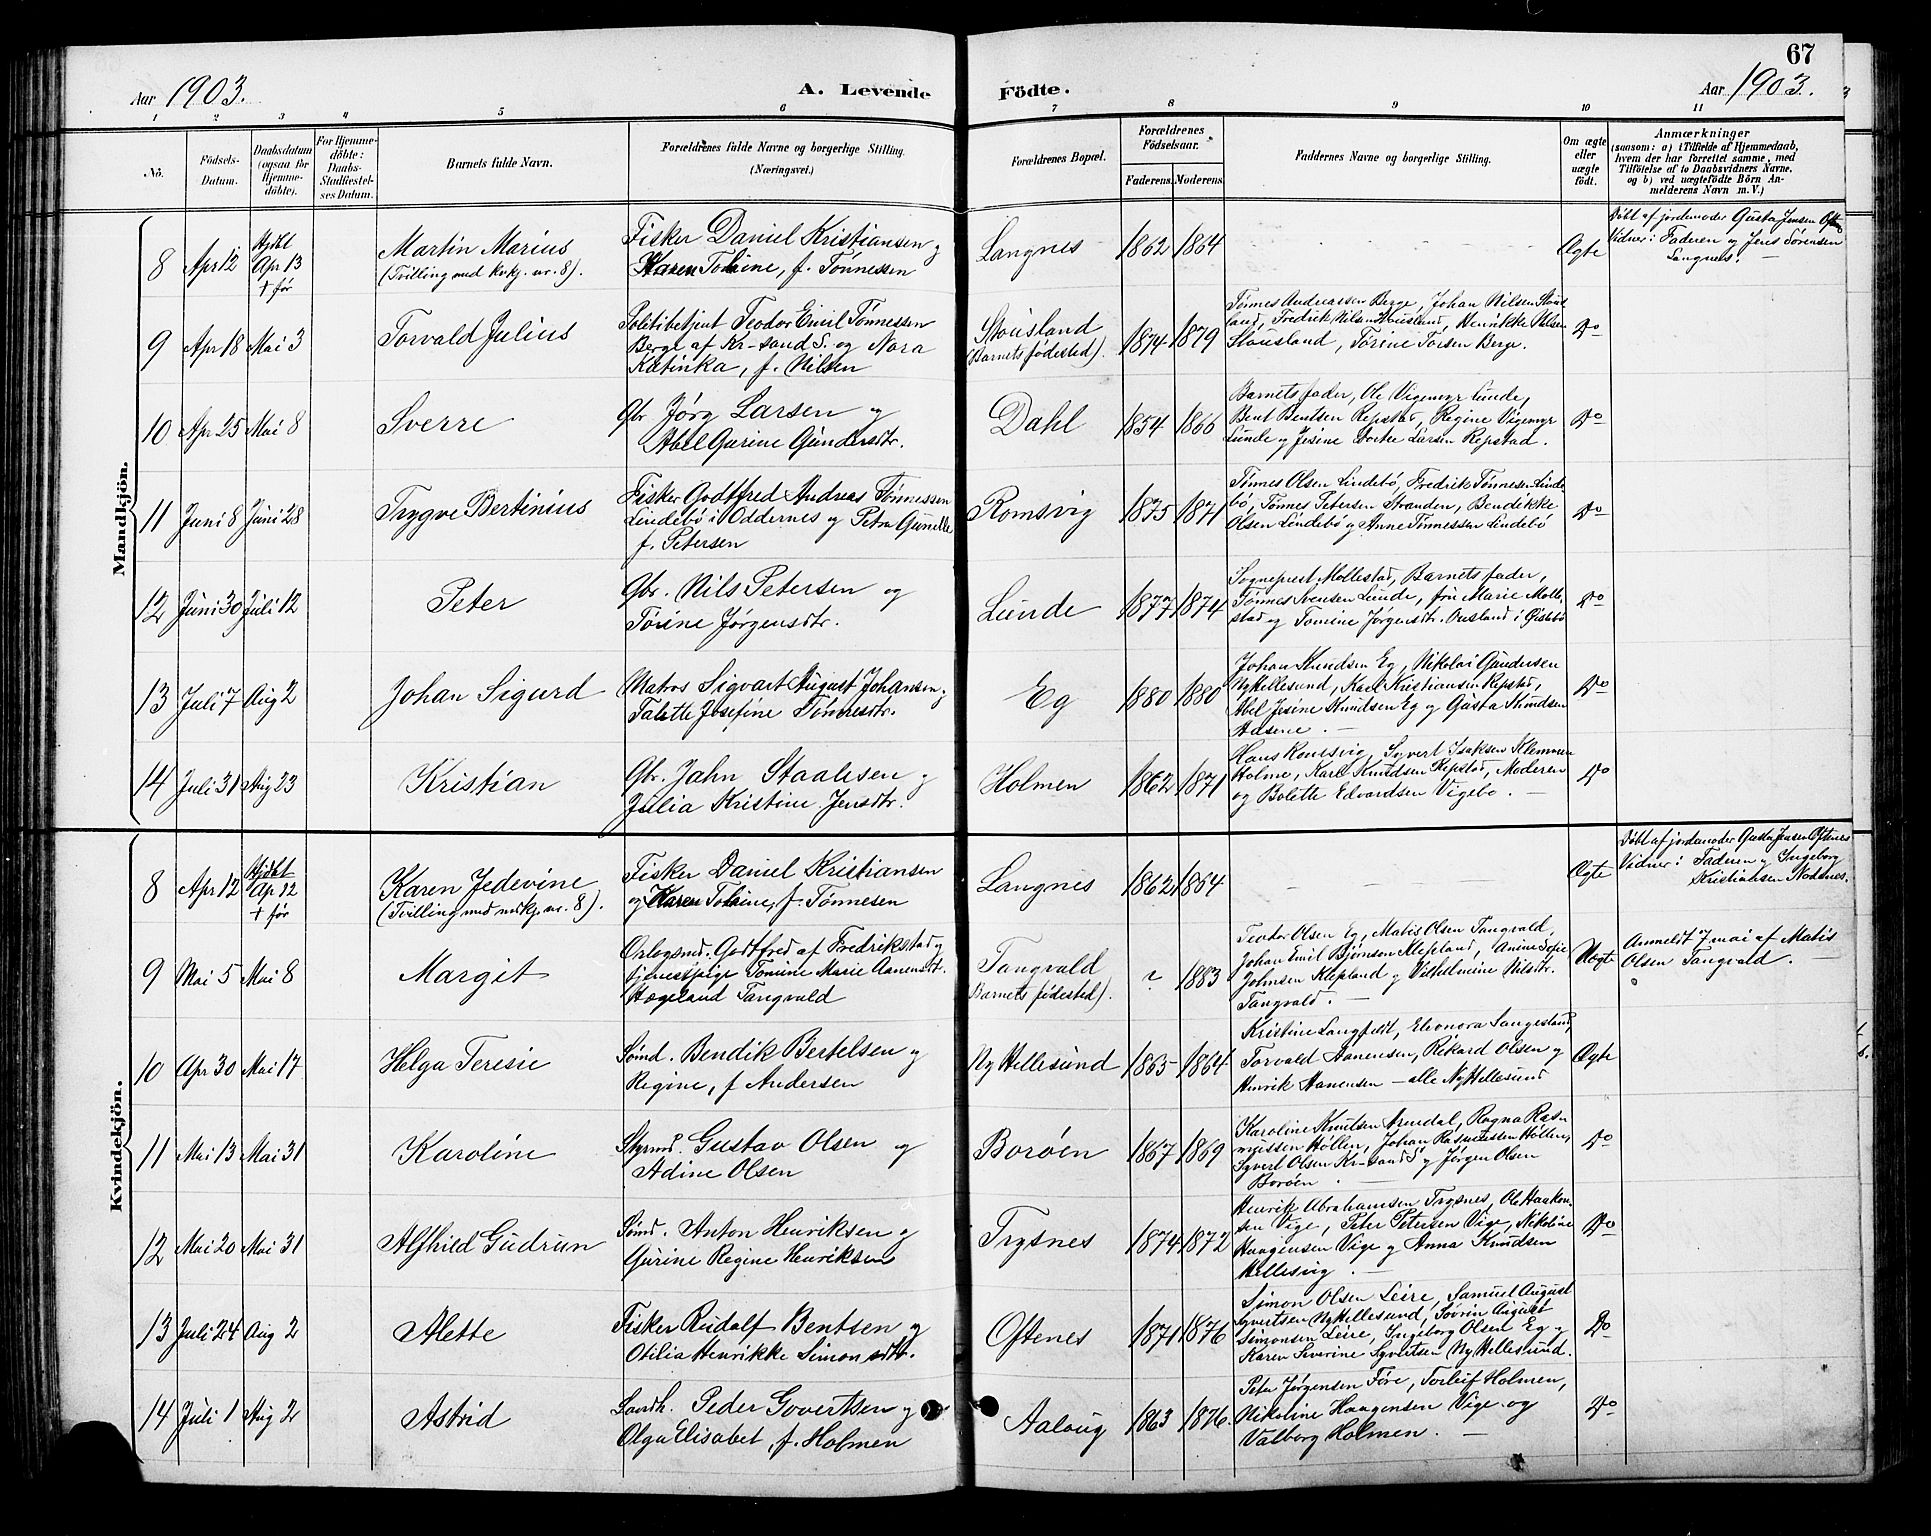 67
Aar 1903.
A. Levende Födte.
Aar 1903.
1 2 3 4 5 6 7 8 9 10 11
No.
Födsels-Datum.
Daabsdatum (ogsaa for Hjemme-döbte).
For Hjemme-döbte: Daabs-Stadfæstelses Datum.
Barnets fulde Navn.
Forældrenes fulde Navne og borgerlige Stilling. (Næringsvei.)
Forældrenes Bopæl.
Forældrenes Födselsaar.
Faderens. Moderens.
Faddernes Navne og borgerlige Stilling.
Om ægte eller uægte födt.
Anmærkninger
(saasom: a) i Tilfælde af Hjemmedaab,
hvem der har forrettet samme, med
Tilföielse af to Daabsvidners Navne.
og b) ved uægtefödte Börn An-
melderens Navn m. V.)
Mandkjön.
8 Apr 12 Hjdbt Apr 13 + før
Martin Marius
(Tvilling med kvkj. nr. 8).
Fisker Daniel Kristiansen og
Karen Tomine, f. Tönnessen
Langnes 1862 1864 Ægte
Döbt af jordemoder Gusta Jensen Oftenes
Vidner: Faderen og Jens Sörensen
Langnes.
9 Apr 18 Mai 3
Torvald Julius
Politibetjent Teodor Emil Tönnessen
Berge af Kr-sand S. og Nora
Katinka, f. Nilsen
Stousland
(Barnets födested).
1874 1879
Tönnes Andreassen Berge, Johan Nilsen Stous
land, Fredrik Nilsen Stousland, Henrikke Nilsen
Stousland, Torine Torsen Berge.
Do
10 Apr 25 Mai 8
Sverre
Gbr Jörg Larsen og
Abel Gurine Gundersdtr.
Dahl 1854 1866
Barnets fader, Ole Vigemyr Lunde,
Bent Bentsen Repstad, Regine Vigemyr
Lunde og Jesine Dorthe Larsen Repstad.
Do
11 Juni 8 Juni 28
Trygve Bertinius
Fisker Godtfred Andreas Tönnessen
Lindebö i Oddernes og Petra Gunelle
f. Petersen
Romsvig 1875 1871
Tönnes Olsen Lindebö, Fredrik Tönnesen Linde
bö, Tönnes Petersen Stranden, Bendikke
Olsen Lindebö og Anne Tönnessen Lindebö
Do
12 Juni 30 Juli 12
Peter
Gbr. Nils Petersen og
Torine Jörgensdtr.
Lunde 1877 1874
Sogneprest Mollestad, Barnets fader,
Tönnes Svensen Lunde, fru Marie Molle
stad og Tomine Jörgensdtr. Ousland i Öislebö
Do
13 Juli 7 Aug 2
Johan Sigurd
Matros Sigvart August Johansen og
Talette Josefine Tönnesdtr.
Eg 1880 1880
Johan Knudsen Eg, Nikolai Gundersen
Ny Hellesund, Karl Kristiansen Repstad,
Abel Jesine Knudsen Eg og Gusta Knudsen
Aasene.
Do
14 Juli 31 Aug 23
Kristian
Gbr. Jahn Staalesen og
Julia Kristine Jensdtr.
Holmen 1862 1871
Hans Romsvig, Syvert Isaksen Klemmen
Holme, Karl Knudsen Repstad, Moderen
og Bolette Edvardsen Vigebo.
Do
Kvindekjön.
8 Apr 12 Hjdbt Ap 12 + før
Karen Jedevine
(Tvilling med mdkj. nr. 8).
Fisker Daniel Kristiansen
og Karen Tomine, f. Tönnesen
Langnes 1862 1864 Ægte
Döbt af jordemoder Gusta Jensen Oftenes
Vidner: Faderen og Ingeborg
Kristiansen Nodenes.
9 Mai 5 Mai 8
Margit
Orlogsmd. Godtfred af Fredrikstad og
tjenestepige Tomine Marie Aanensdtr.
Hægeland Tangvald
Tangvald
Barnets födested).
? 1883
Teodor Olsen Eg, Matis Olsen Tangvald,
Johan Emil Bjönson Klepland, Anine Sofie
Johnsen Klepland og Vilhelmine Nilsdtr.
Tangvald.
Uægte
Anmeldt 7 mai af Matis
Olsen Tangvald.
10 Apr 30 Mai 17
Helga Teresie
Sömd. Bendik Bertelsen og
Regine, f Andersen
Ny Hellesund 1863 1864
Kristine Langfeldt, Eleonora Langesland,
Torvald Aanensen, Rikard Olsen og
Henrik Hanensen - alle Ny Hellesund
Ægte
11 Mai 13 Mai 31
Karoline
Styrmd. Gustav Olsen og
Adine Olsen
Boröen 1867 1869
Karoline Knutsen Arendal, Ragna Ras-
mussen Höllen, Johan Rasmussen Höllen,
Syvert Olsen Kr-sand S og Jörgen Olsen
Boröen.
Do
12 Mai 20 Mai 31
Alfhild Gudrun
Sömd. Anton Henriksen og
Gurine Regine Henriksen
Trysnes 1874 1872
Henrik Abrahamsen Trysnes, Ole Haaken-
sen Vige, Peter Petersen Vige, Nikoline
Haagensen Vige og Anna Knudsen
Hellesvig.
Do
13 Juli 24 Aug 2
Alette
Fisker Rudolf Bentsen og
Otilia Henrikke Simonsdtr.
Oftenes 1871 1876
Simon Olsen Leire, Samuel August
Syvertsen Ny Hellesund, Sövrin August
Simonsen Leire, Ingeborg Olsen Eg og
Karen Severine Syvertsen Ny Hellesund.
Do
14 Juli 1 Aug 2
Astrid
Gaardb. Peder Govertsen og
Olga Elisabet, f. Holmen
Aaloug 1863 1876
Peter Jörgensen Före, Torleif Holmen,
Nikoline Haagensen Vige og
Valborg Holmen.
Do